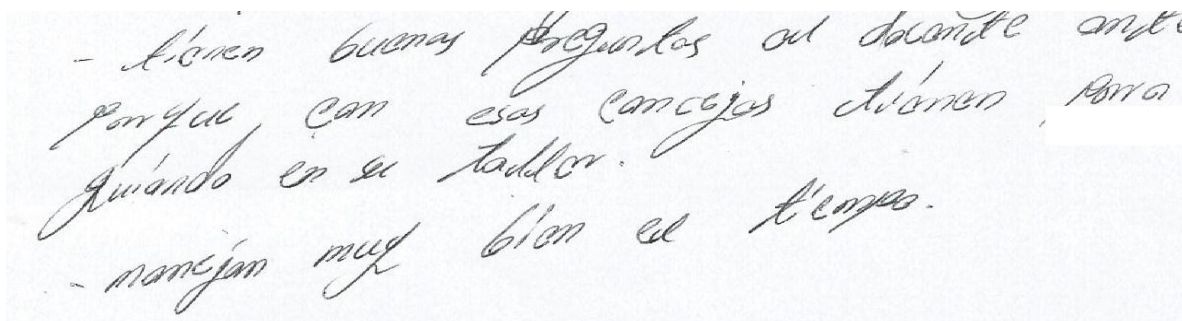 - tienen buenas preguntas al docente ante
porque con esas concejas tiénen para
guiando en su taller.
- manejan muy bien el tiempo.